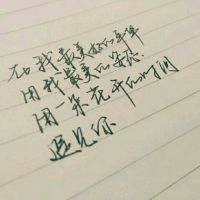 在我最美好的年华
用我最美的姿态
用一朵花开的时间
遇见你